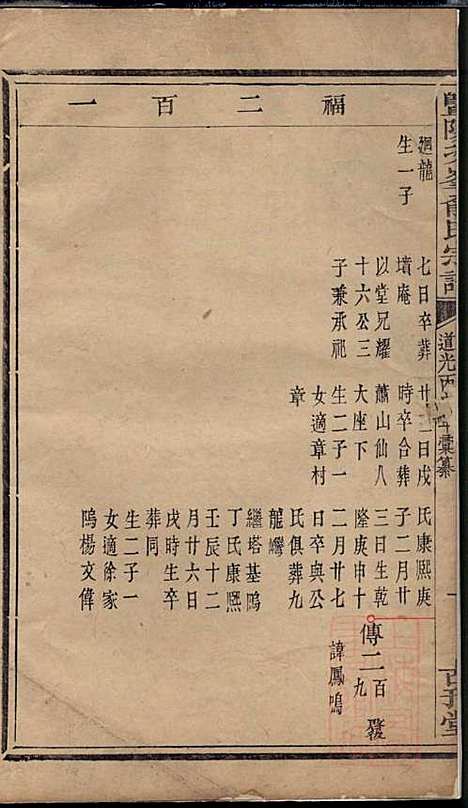 福二百一
廻龍
生一子
七日卒葬
墳庵
以堂兄耀
十六公三
子兼承祀
廿二日戌
時卒合葬
蕭山仙人
大座下
生二子一
女適章村
章
氏康熙庚
子二月廿
三日生乾
隆庚申十
二月廿七
日卒與公
氏俱葬九
龍灣
繼塔基隖
丁氏康熙
壬辰十二
月廿六日
戌時生卒
葬同
生二子一
女適徐家
隖楊文偉
傳二百
九
發
諱鳳鳴